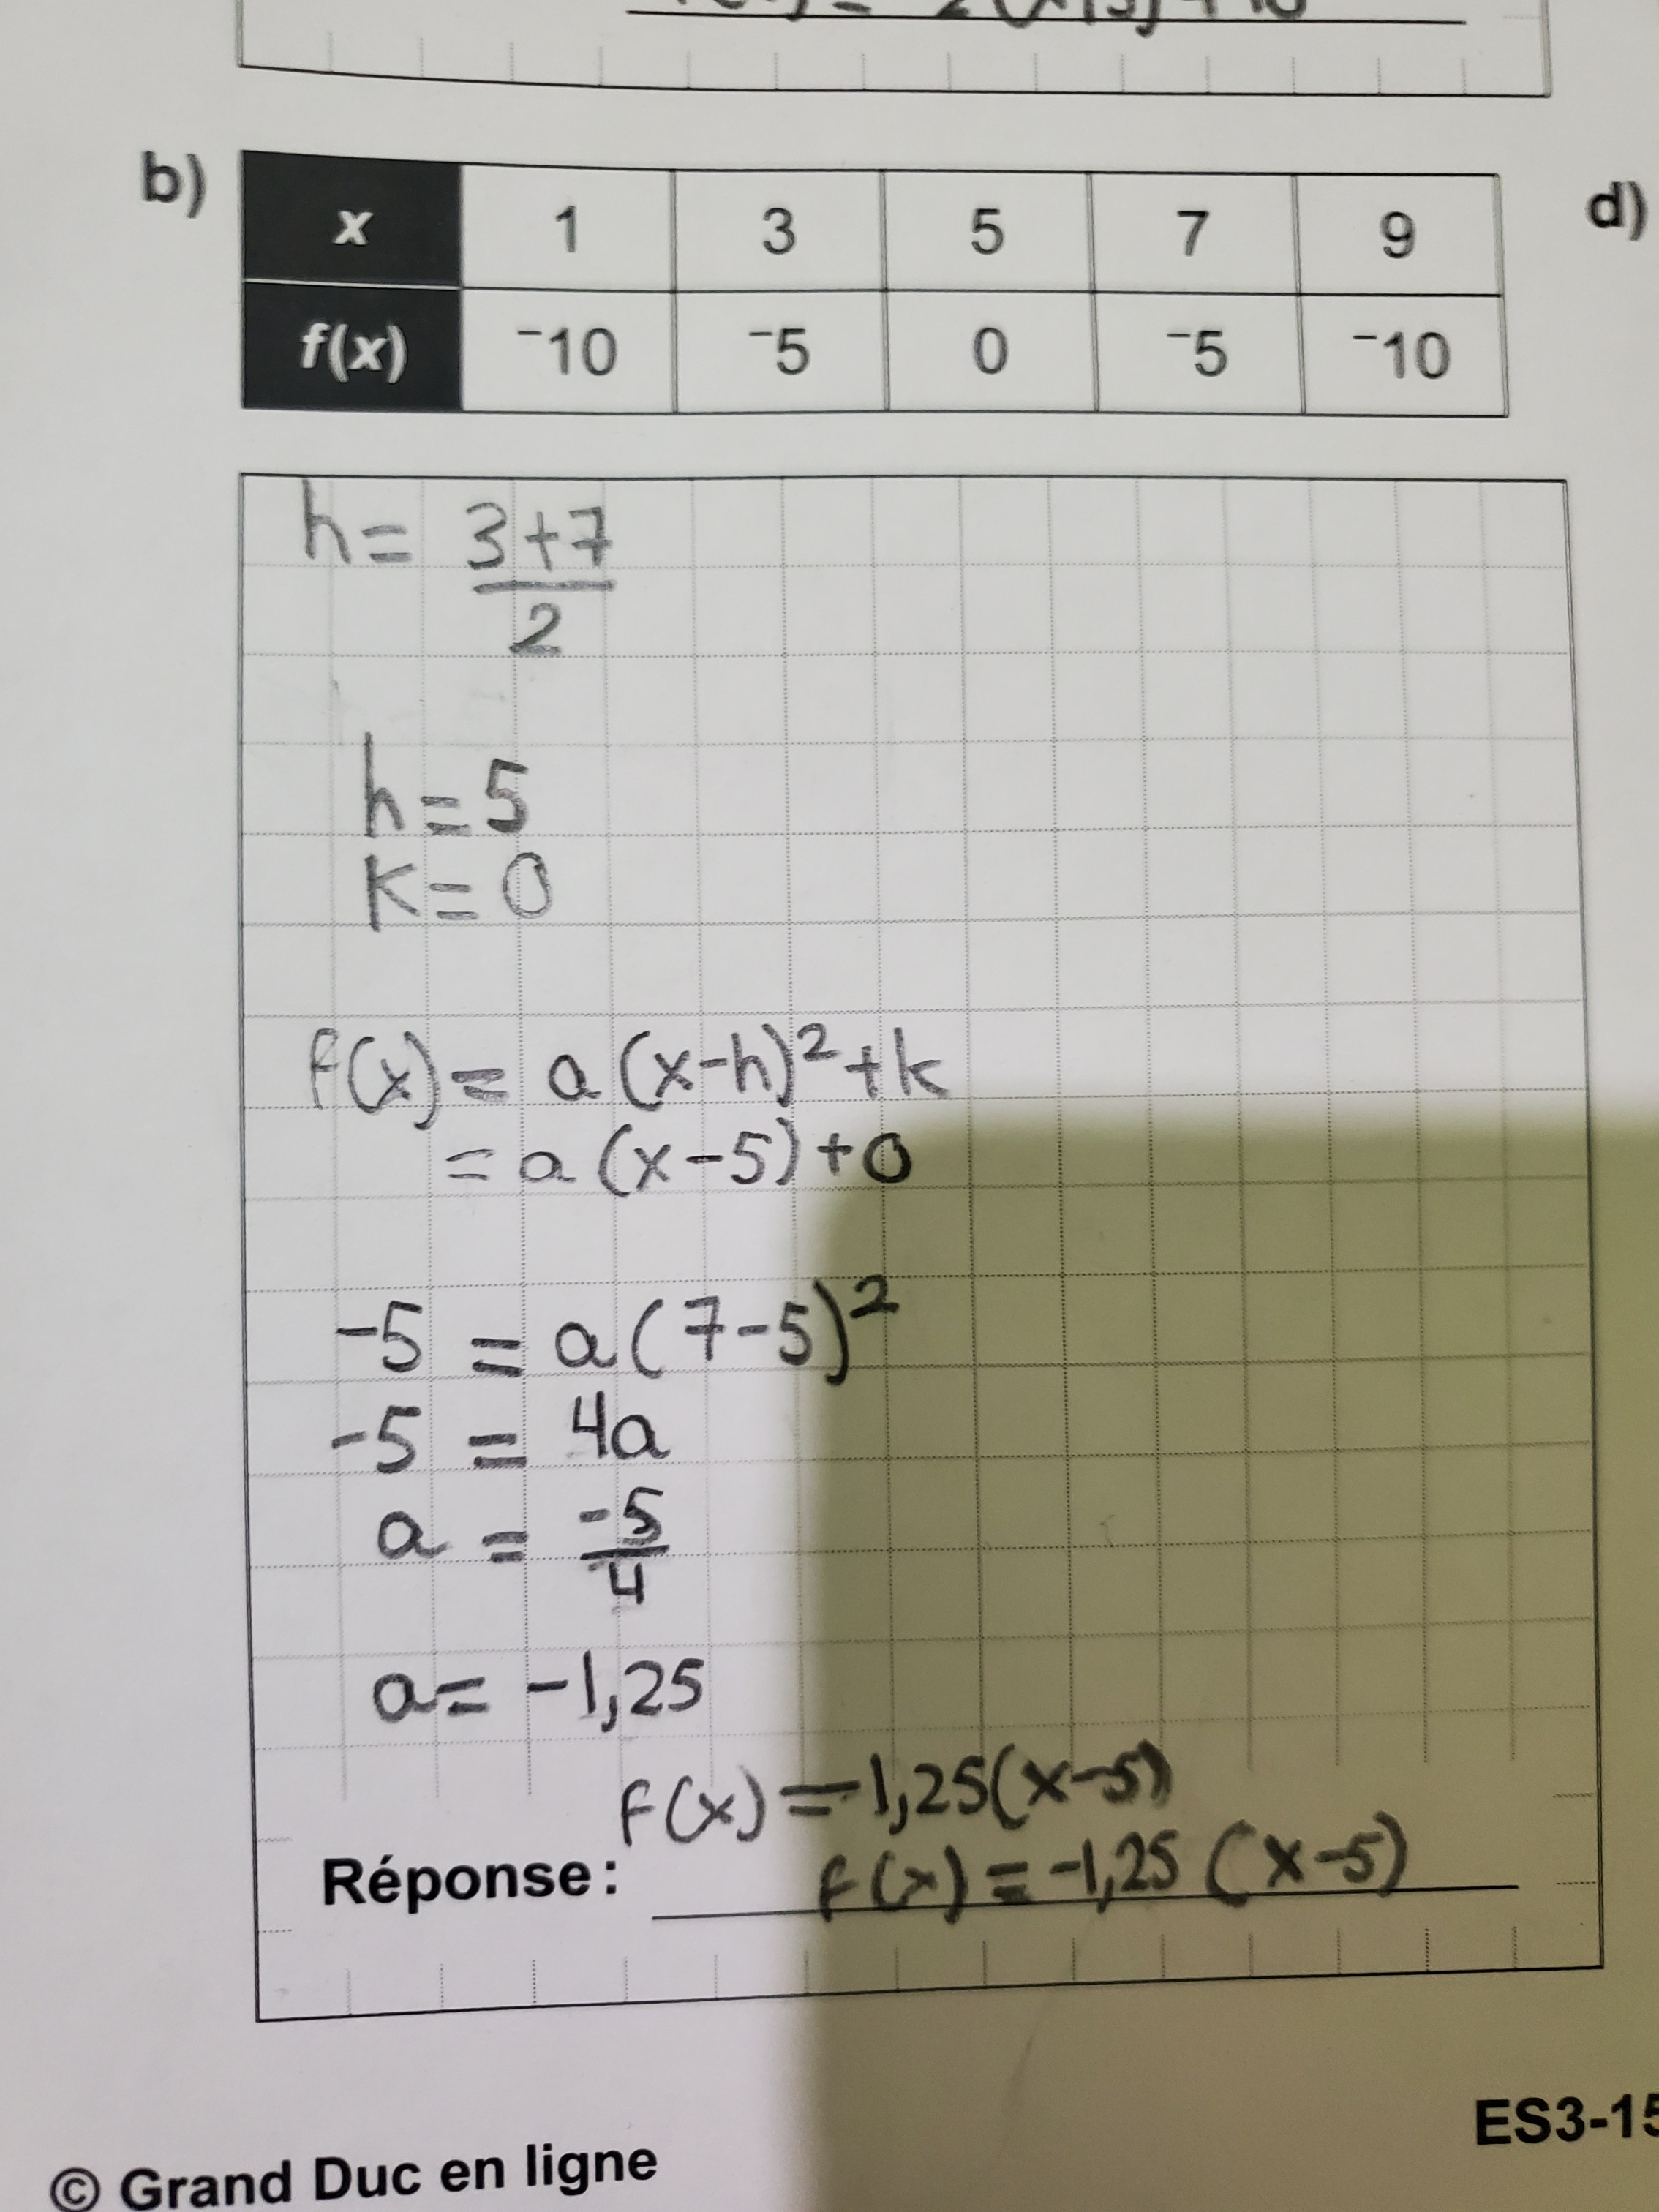 b)
x 1 3 5 7 9
f(x) ⁻10 ⁻5 0 ⁻5 ⁻10
d)
h = 3+7
2
h = 5
k = 0
f(x) = a(x-h)² + k
= a(x-5) + 0
-5 = a(7-5)²
-5 = 4a
a = -5
4
a = -1,25
f(x) = -1,25(x-5)
Réponse : f(x) = -1,25 (x-5)
ES3-15
© Grand Duc en ligne